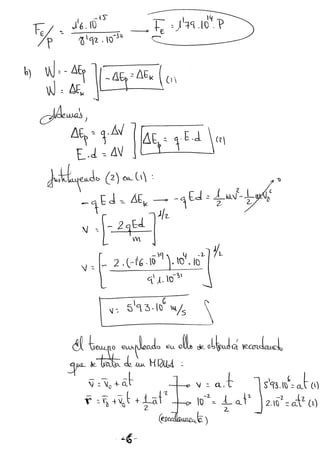 F_E/P = 1'6.10^-15 / 8'92.10^-30 → F_E = 1'79.10^14.P
b) W = - ΔEp
W = ΔEk
- ΔEp = ΔEk (1)
Además,
ΔEp = q.ΔV
E.d = ΔV
ΔEp = q.E.d (2)
Sustituyendo (2) en (1) :
- q E d = ΔEk → - q E d = 1/2 mv² - 1/2 mv₀² 0
v = [ - 2qEd / m ]^1/2
v = [ - 2.(-1'6.10^-19).10^4.10^-2 / 9'1.10^-31 ]^1/2
v = 5'93.10^6 m/s
El tiempo empleado en ello se obtendrá recordando
que se trata de un MRUA :
v̄ = v̄₀ + āt → v = a.t 5'93.10^6 = at (1)
r̄ = r̄₀ + v̄₀t + 1/2 āt² → 10^-2 = 1/2 at² 2.10^-2 = at² (2)
(escalarmente)
-6-